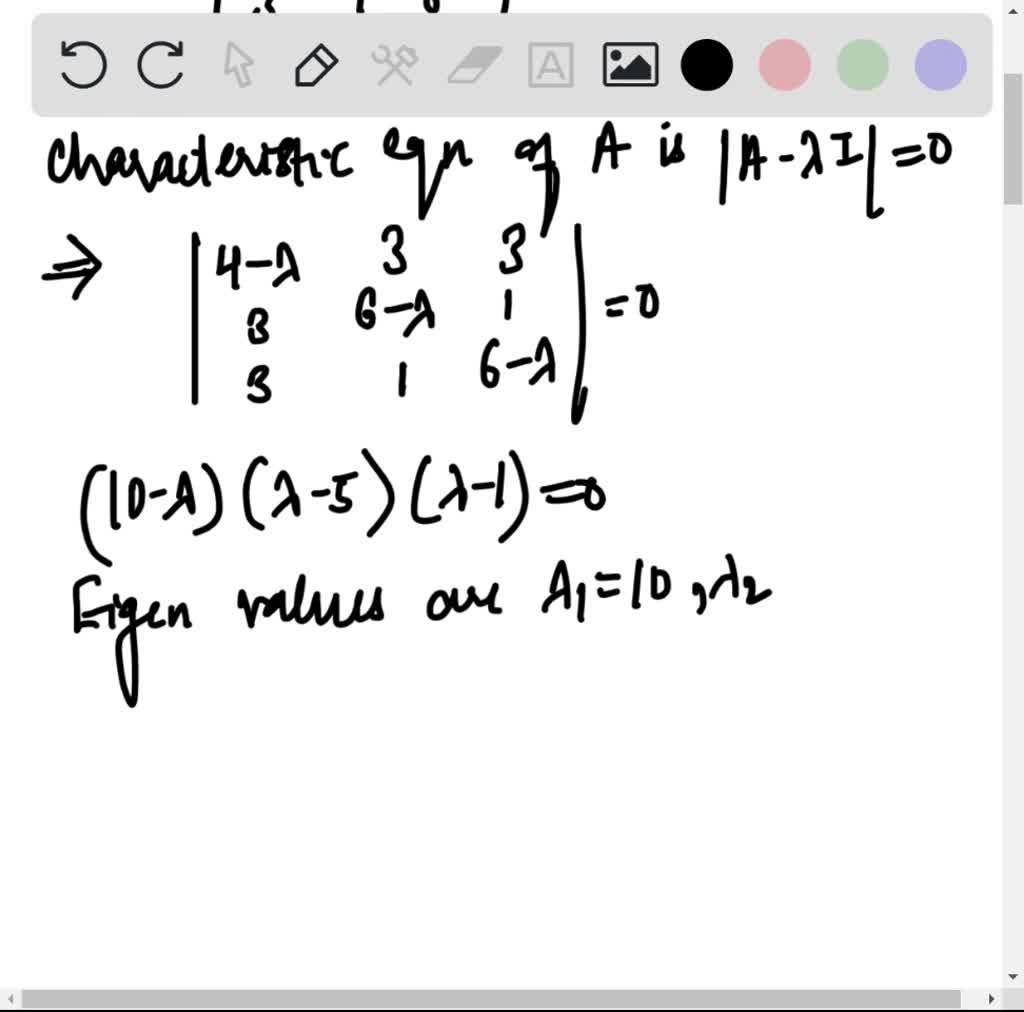 characteristic eqn of A is |A-λI|=0
⇒ | 4-λ 3 3 |
| 3 6-λ 1 | =0
| 3 1 6-λ |
(10-λ)(λ-5)(λ-1)=0
Eigen values are λ₁=10, λ₂